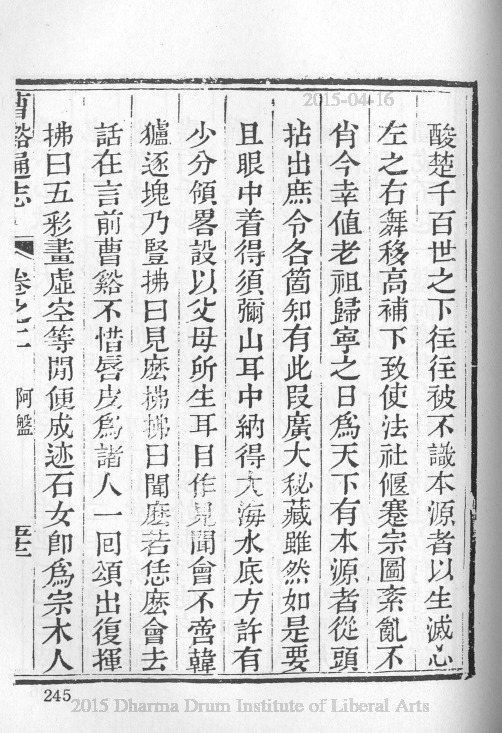 2015-04-16
酸楚千百世之下往往被不識本源者以生滅心
左之右舞移高補下致使法社偃蹇宗圖紊亂不
肖今幸値老祖歸寧之日爲天下有本源者從頭
拈出庶令各箇知有此段廣大秘藏雖然如是要
且眼中着得須彌山耳中納得大海水底方許有
少分領畧設以父母所生耳目作見聞會不啻韓
獹逐塊乃豎拂曰見麽擲拂曰聞麽若恁麽會去
話在言前曹谿不惜唇皮爲諸人一回頌出復揮
拂曰五彩畫虛空等閒便成迹石女卽爲宗木人
曹谿通志
卷之二
阿盤
五十三
245
2015 Dharma Drum Institute of Liberal Arts